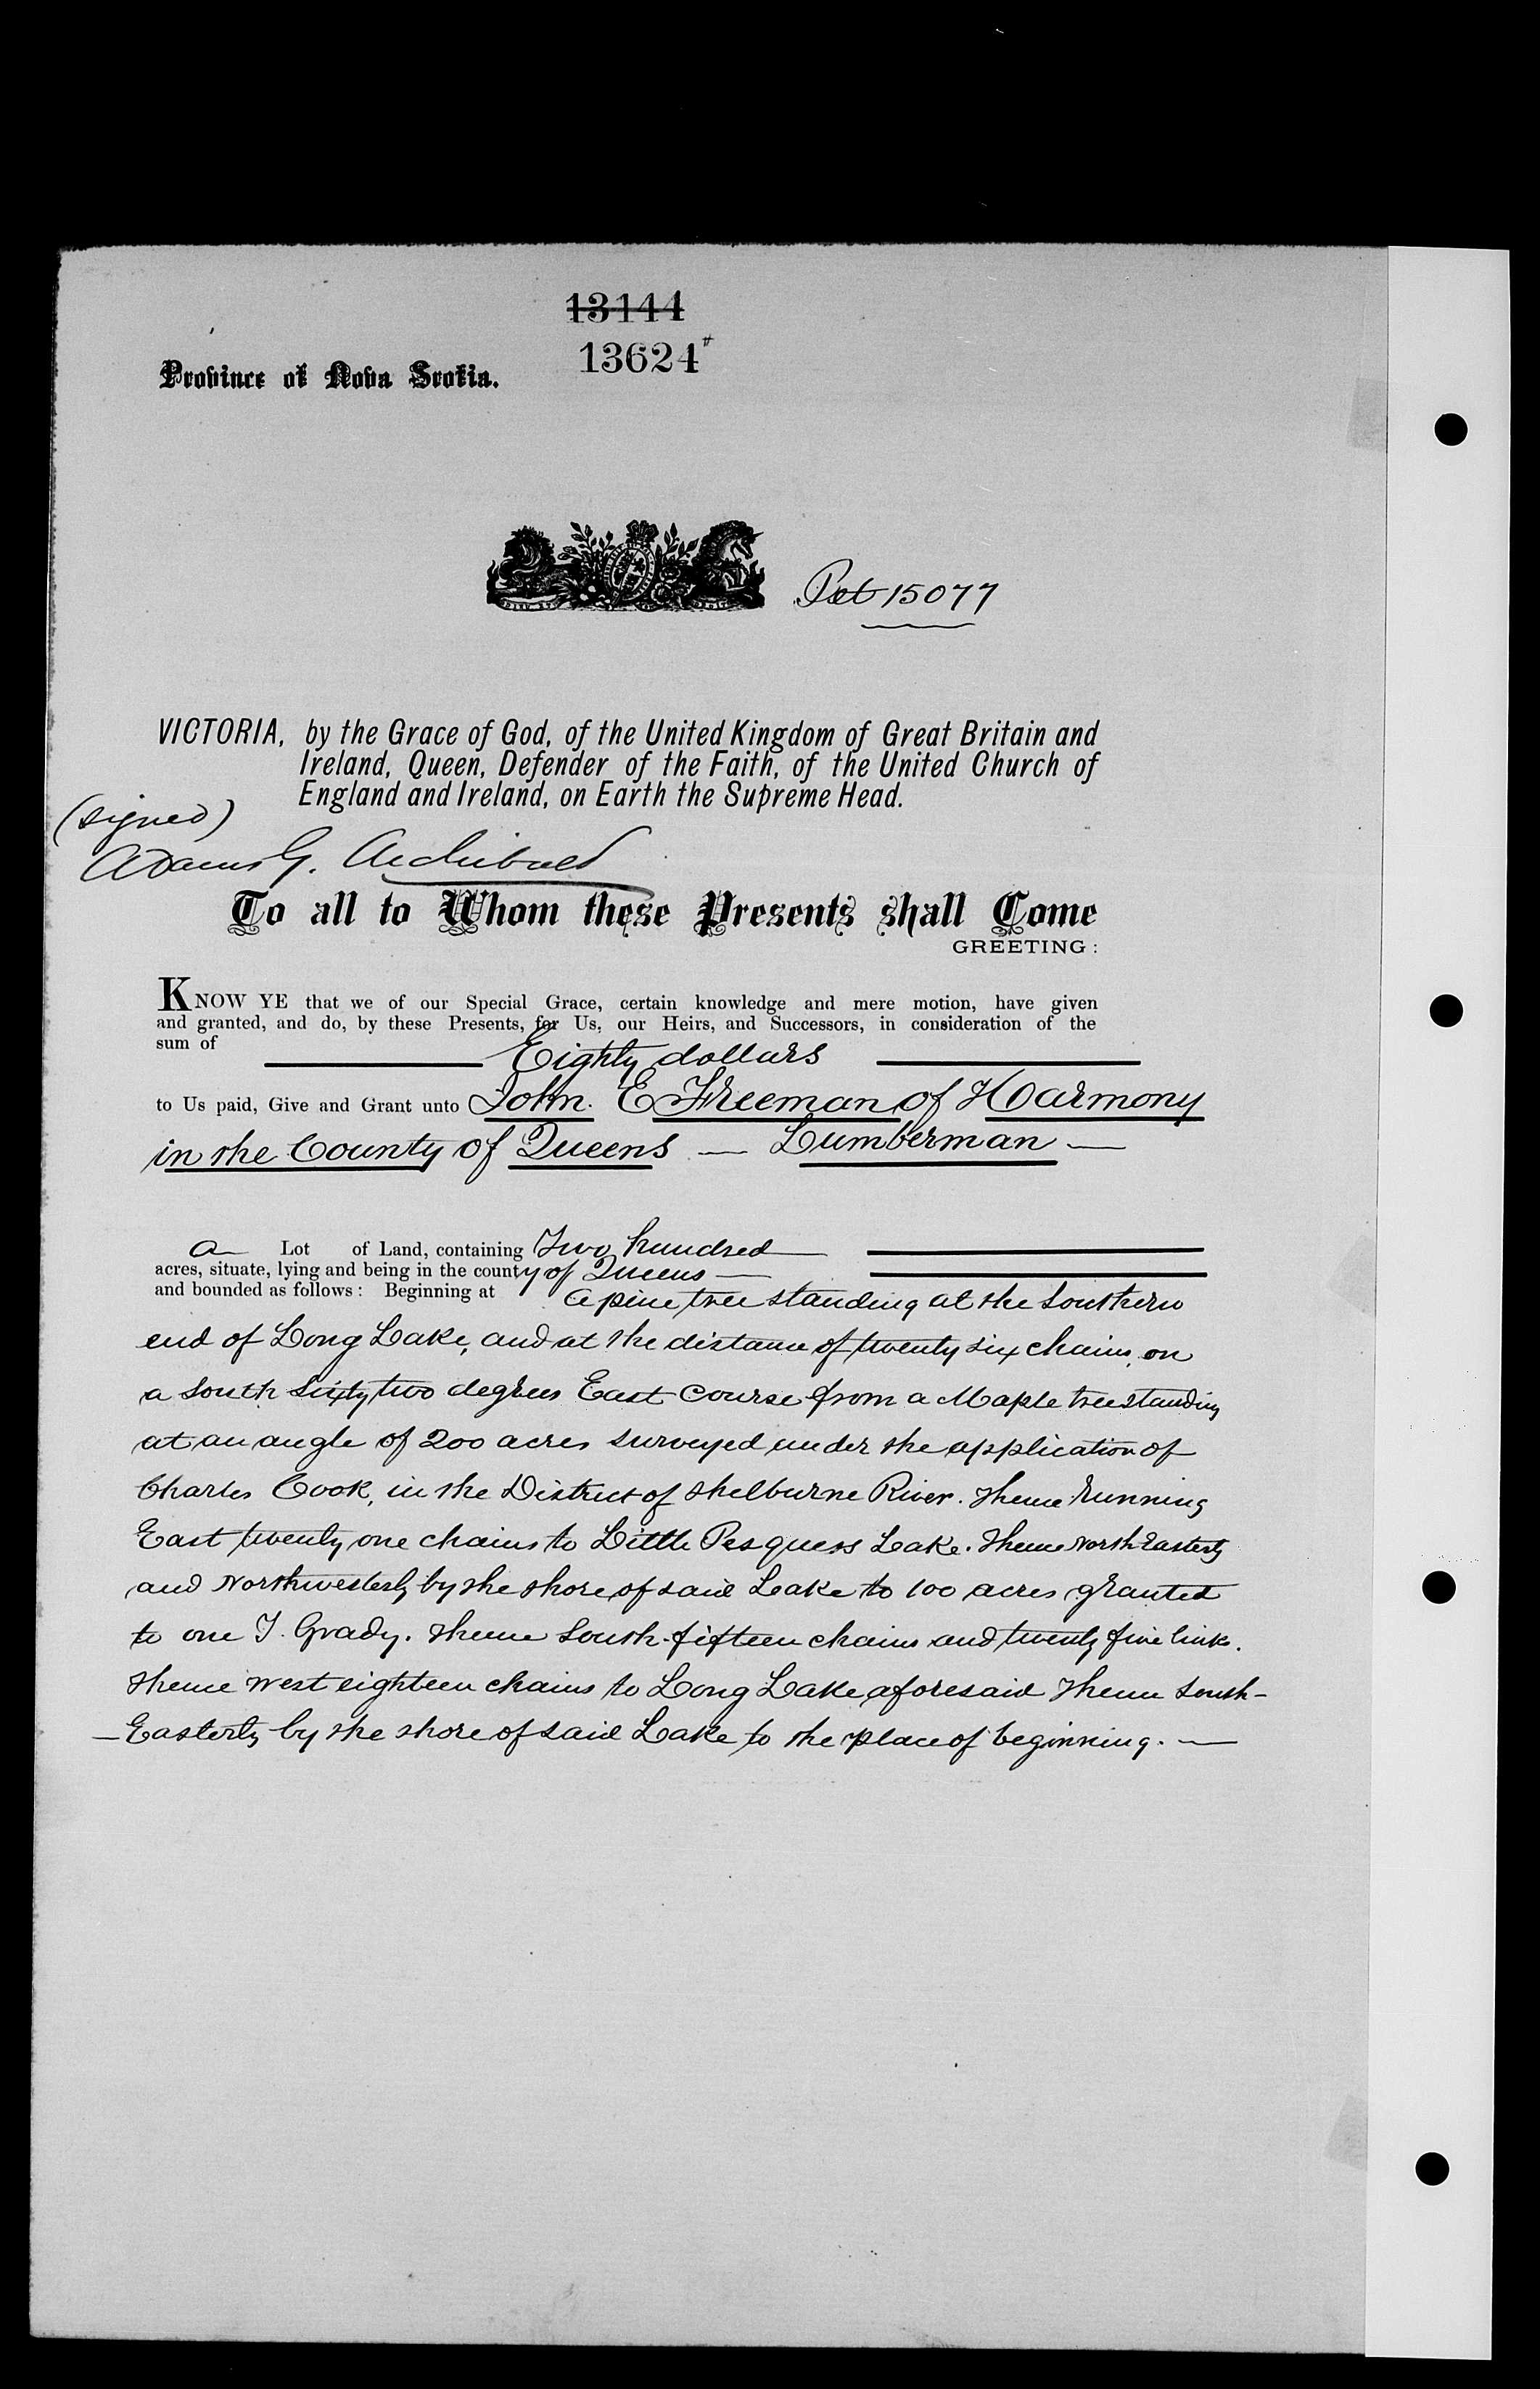 13144
13624
Province of Nova Scotia.
Pet 15077
VICTORIA, by the Grace of God, of the United Kingdom of Great Britain and
Ireland, Queen, Defender of the Faith, of the United Church of
England and Ireland, on Earth the Supreme Head.
(signed)
Adams G. Archibald
To all to Whom these Presents shall Come
GREETING:
KNOW YE that we of our Special Grace, certain knowledge and mere motion, have given
and granted, and do, by these Presents, for Us, our Heirs, and Successors, in consideration of the
sum of Eighty dollars
to Us paid, Give and Grant unto John. E Freeman of Harmony
in the County of Queens — Lumberman —
a Lot of Land, containing Two hundred
acres, situate, lying and being in the county of Queens —
and bounded as follows: Beginning at a pine tree standing at the Southern
end of Long Lake, and at the distance of twenty six chains, on
a South Sixty two degrees East course from a Maple tree standing
at an angle of 200 acres surveyed under the application of
Charles Cook, in the District of Shelburne River. Thence running
East twenty one chains to Little Pesquess Lake. Thence North Easterly
and Northwesterly by the shore of said Lake to 100 acres granted
to one J. Grady. Thence South fifteen chains and twenty five links.
Thence West eighteen chains to Long Lake aforesaid Thence South-
-Easterly by the shore of said Lake to the place of beginning. —